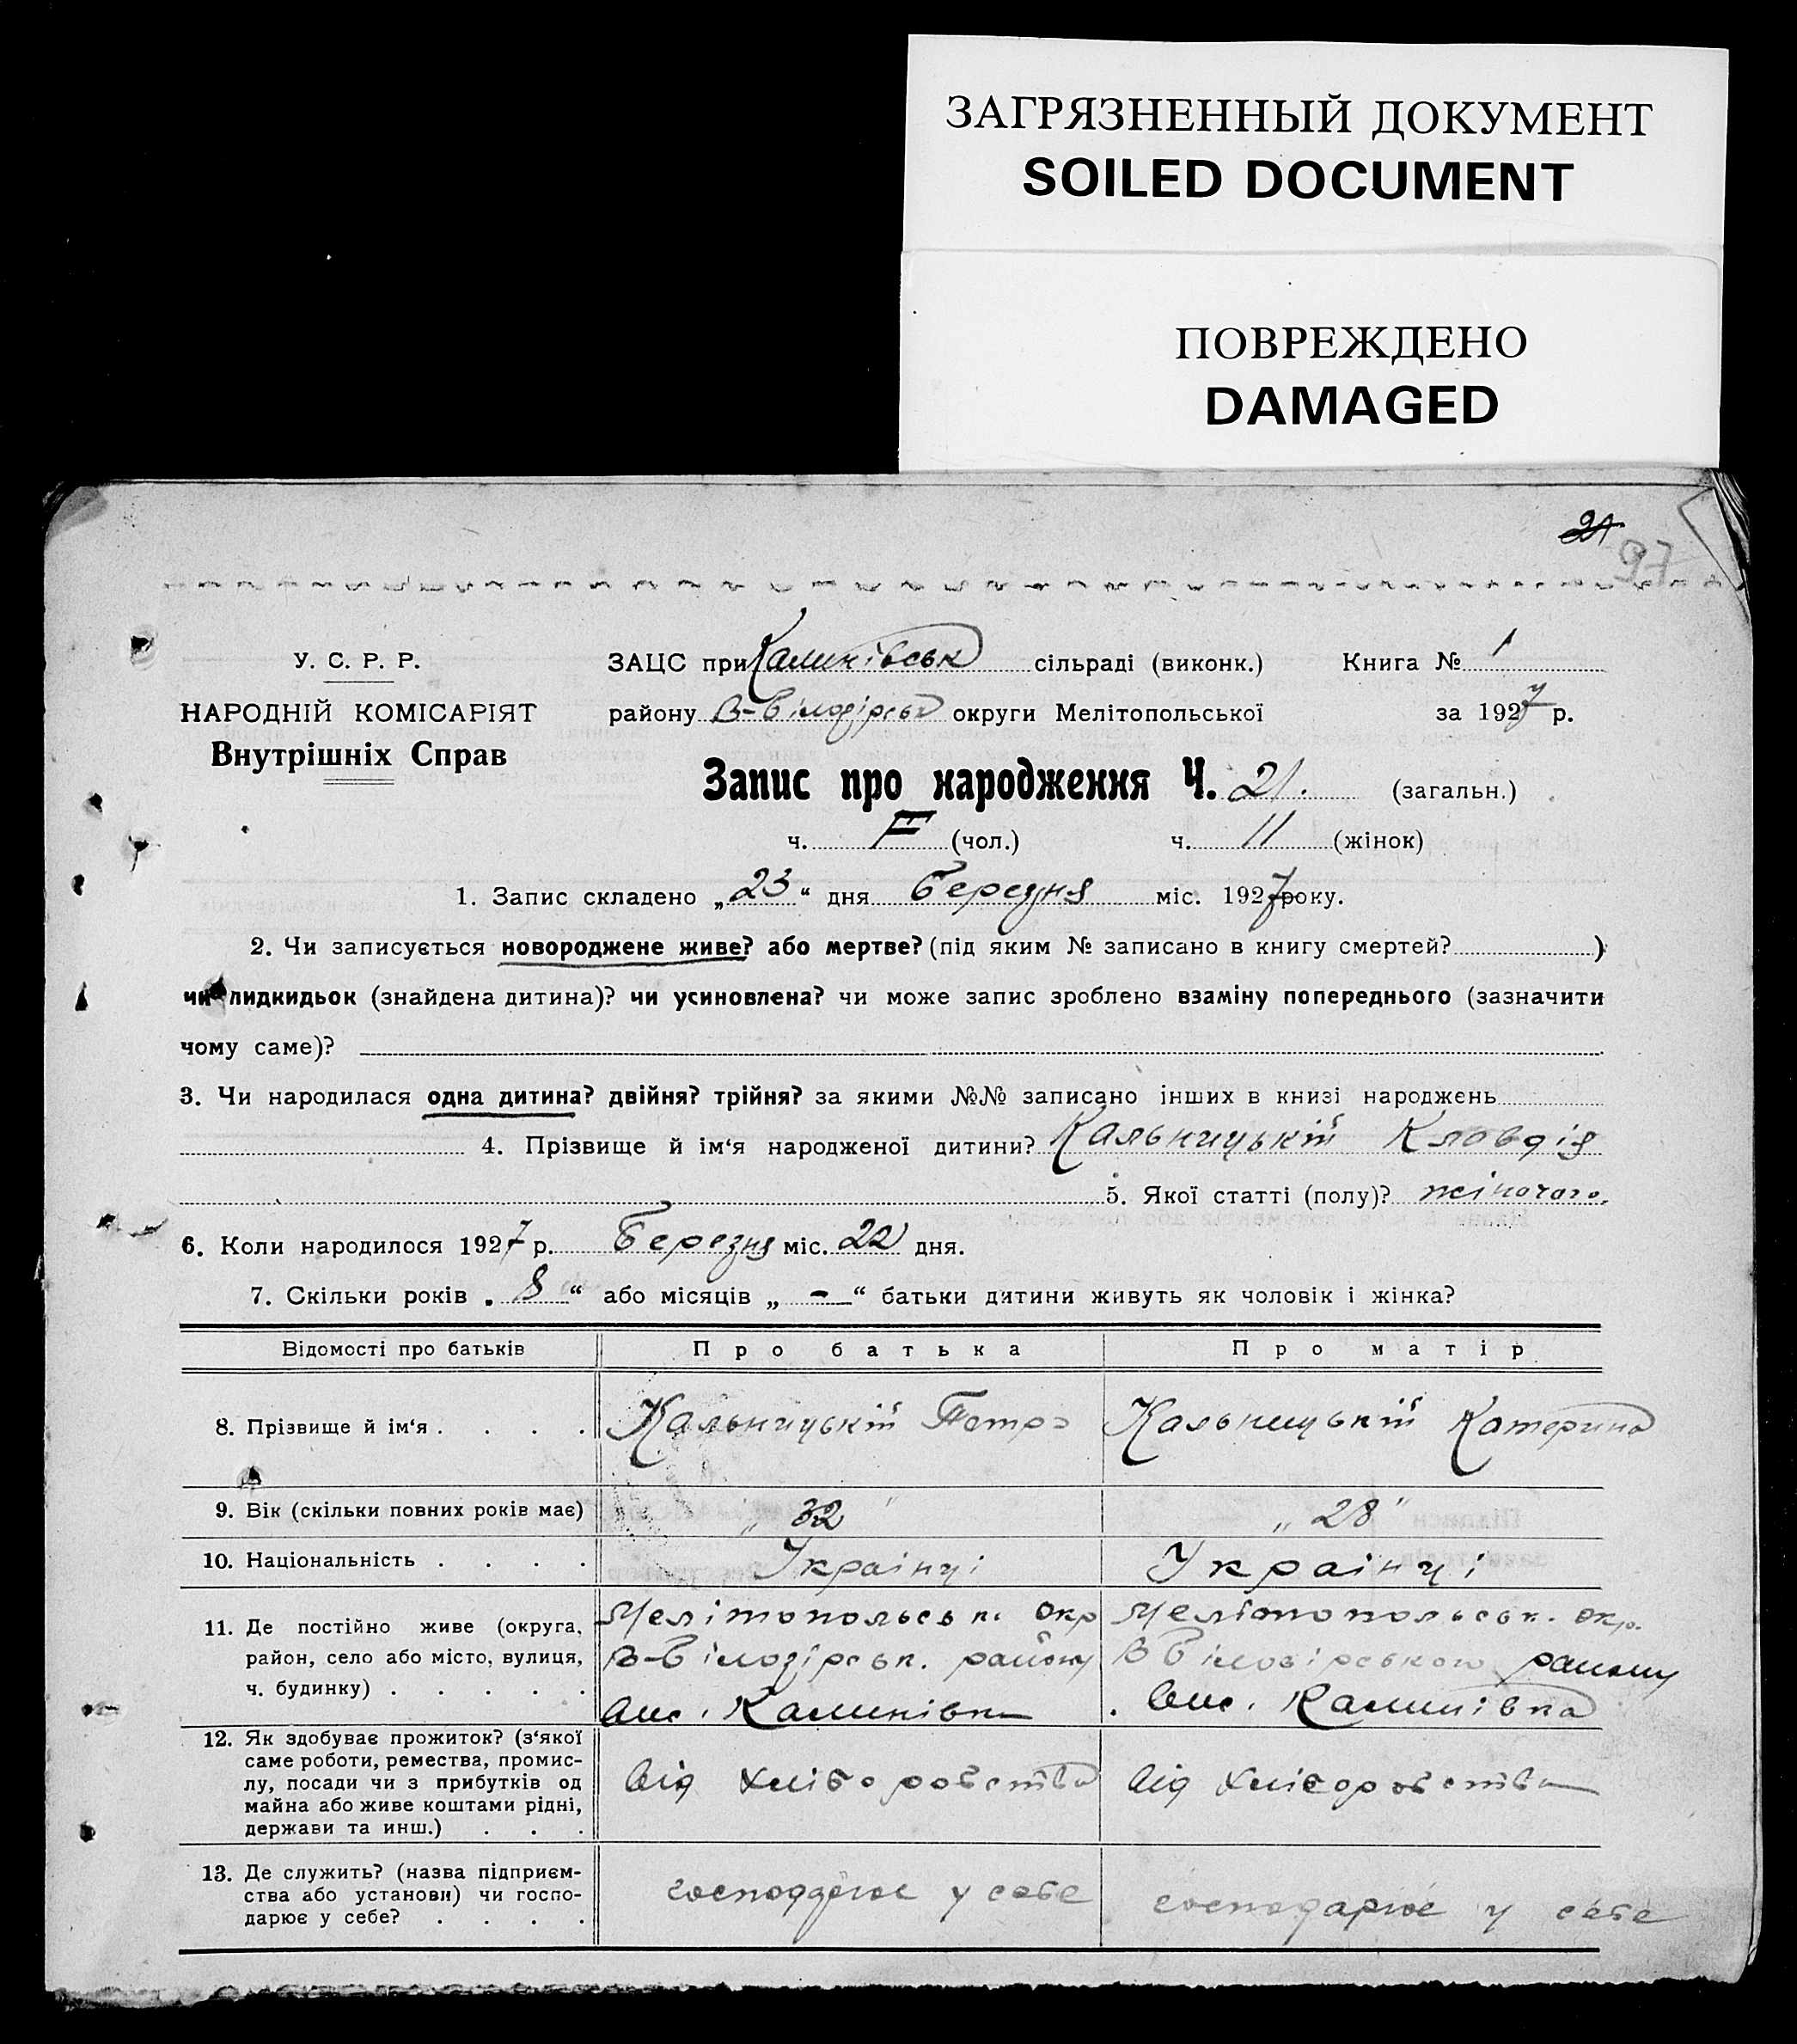 ЗАГРЯЗНЕННЫЙ ДОКУМЕНТ
SOILED DOCUMENT
ПОВРЕЖДЕНО
DAMAGED
21
97
У. С. Р. Р.
НАРОДНІЙ КОМІСАРІЯТ
Внутрішніх Справ
ЗАЦС при Калинівськ сільраді (виконк.) Книга № 1
району В-Білозірськ округи Мелітопольської за 1927 р.
Запис про народження Ч. 21. (загальн.)
ч. (чол.) ч. 11 (жінок)
1. Запис складено „23“ дня Березня міс. 1927 року.
2. Чи записується новороджене живе? або мертве? (під яким № записано в книгу смертей? )
чи підкидьок (знайдена дитина)? чи усиновлена? чи може запис зроблено взаміну попереднього (зазначити
чому саме)?
3. Чи народилася одна дитина? двійня? трійня? за якими №№ записано інших в книзі народжень
4. Прізвище й ім‘я народженої дитини? Кальницькій Кловдія
5. Якої статті (полу)? жіночого.
6. Коли народилося 1927 р. Березня міс. 22 дня.
7. Скільки років „ 8 “ або місяців „ - “ батьки дитини живуть як чоловік і жінка?
Відомості про батьків Про батька Про матір
8. Прізвище й ім‘я . . . . Кальницькій Петро Кальницькій Катерина
9. Вік (скільки повних років має) „ 32 " „ 28 "
10. Національність . . . . Українці Українці
11. Де постійно живе (округа, Мелітопольськ. окр Мелітопольськ. окр.
район, село або місто, вулиця, В-Білозірськ. району В Білозірського району
ч. будинку) . . . . . вис. Калинівка вис. Калинівка
12. Як здобуває прожиток? (з‘якої
саме роботи, ремества, промис-
лу, посади чи з прибутків од від хліборобства від хліборобства
майна або живе коштами рідні,
держави та инш.) . . .
13. Де служить? (назва підприєм-
ства або установи) чи госпо- господарює у себе господарює у себе
дарює у себе? . . . .